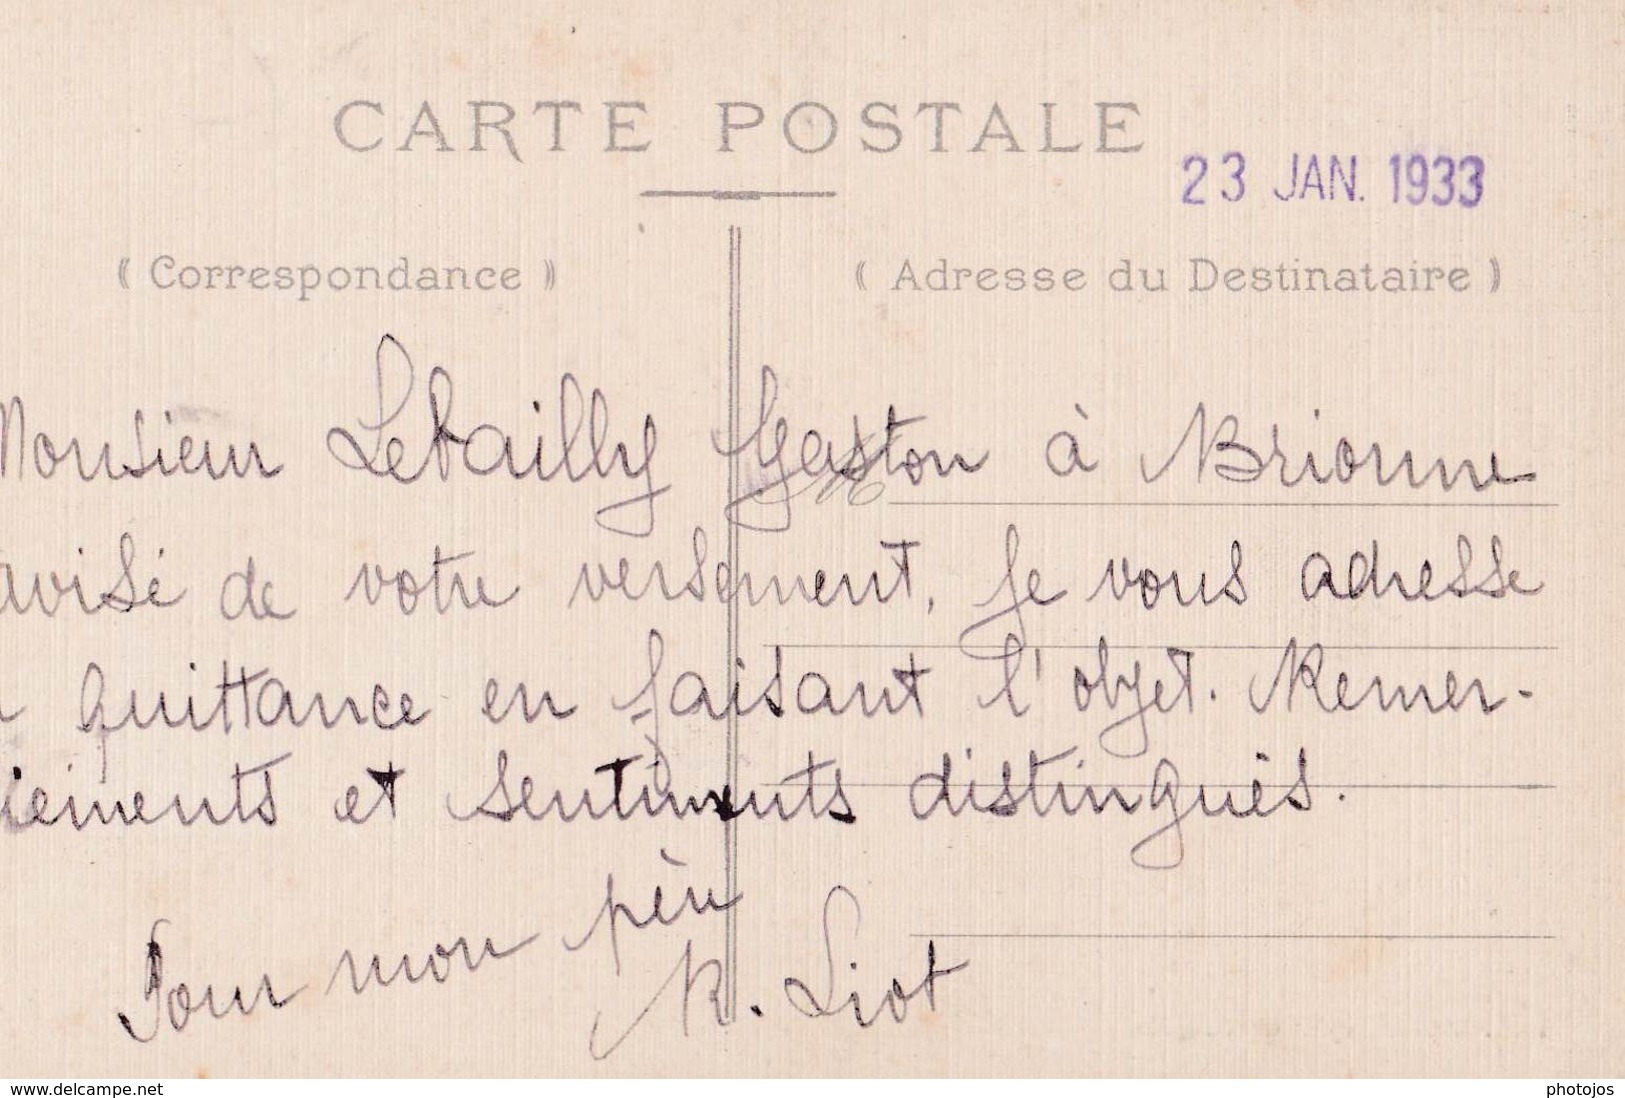 CARTE POSTALE
23 JAN. 1933
( Correspondance )
( Adresse du Destinataire )
Monsieur Lebailly Gaston à Brionne
avisé de votre versement, je vous adresse
quittance en faisant l'objet. Remer-
ciements et sentiments distingués.
Pour mon père
R. Liot
www.delcampe.net
photojos